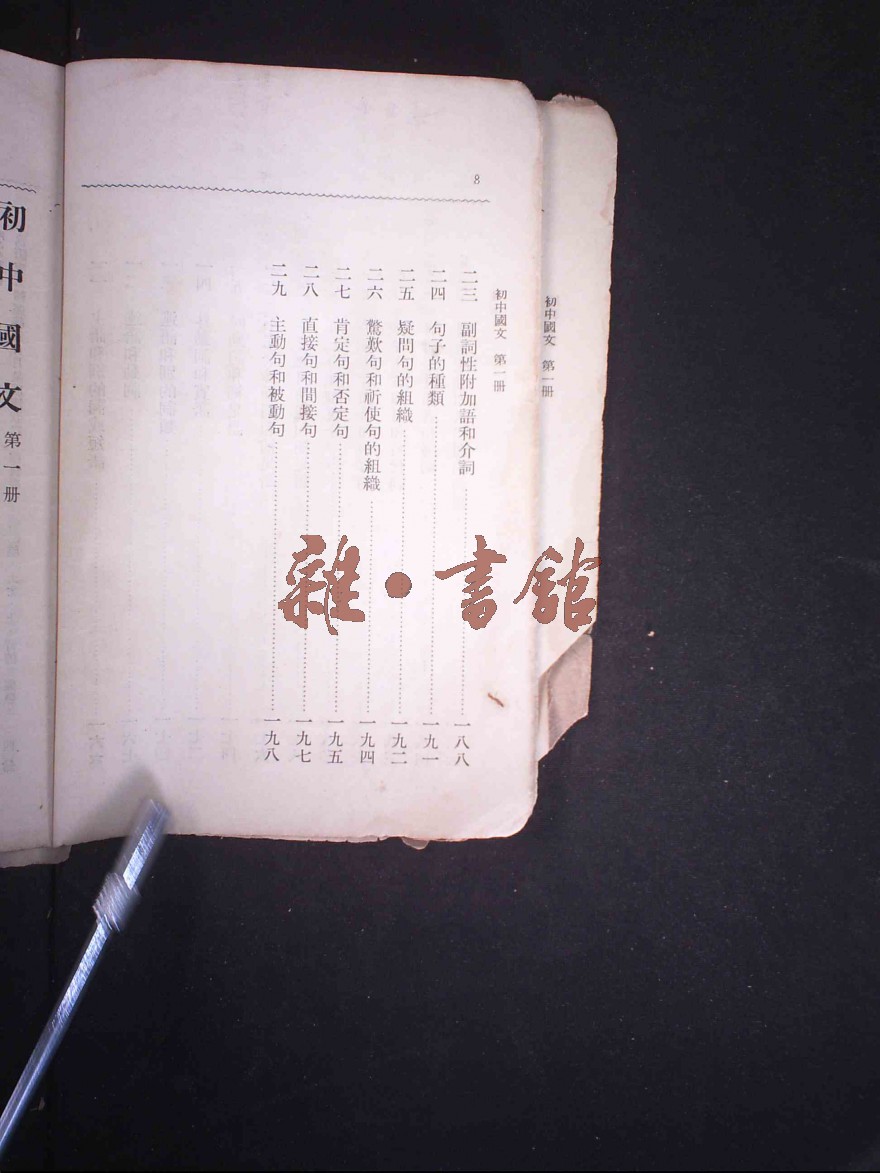 初中國文 第一册
8
初中國文 第一册
二三 副詞性附加語和介詞………一八八
二四 句子的種類………一九一
二五 疑問句的組織………一九二
二六 驚歎句和祈使句的組織………一九四
二七 肯定句和否定句………一九五
二八 直接句和間接句………一九七
二九 主動句和被動句………一九八
初中國文 第一册
雜·書館